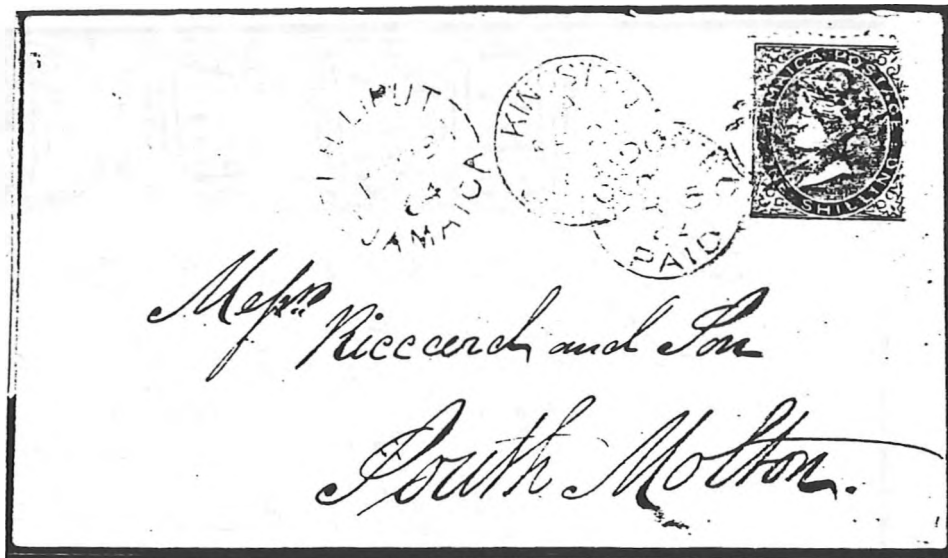 LILLIPUT
JAMAICA
KINGSTO
LONDON
PAID
JAMAICA POSTAGE
ONE SHILLING
Messrs
Riccard and Son
South Molton.